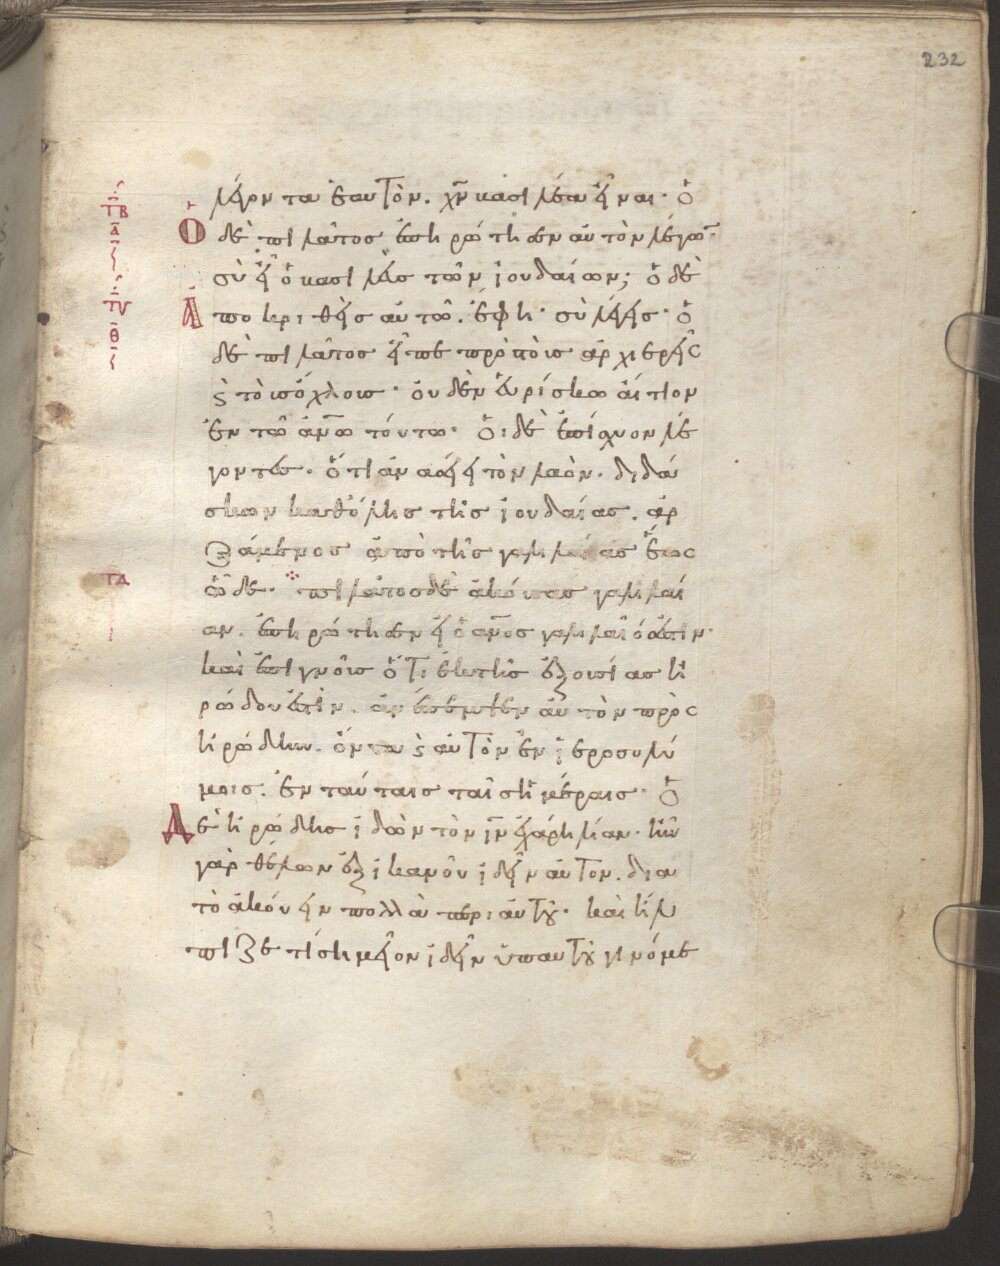 232
λέγοντα ἑαυτὸν. χ̅ν̅ βασιλέα εἶναι· ὁ
Ὁ δὲ πιλᾶτος ἐπηρώτησεν αὐτὸν λέγω̅
σὺ εἶ ὁ βασιλεὺς τῶν ἰουδαίων; ὁ δὲ
Ἀποκριθεὶς αὐτῶ. ἔφη· σὺ λέγεις· ὁ
δὲ πιλᾶτος εἶπε πρὸς τοὺς ἀρχιερεῖς
ϛ τοὺς ὄχλους· οὐδὲν εὑρίσκω αἴτιον
ἐν τῶ ἀν̅ω τούτω· οἱ δὲ ἐπίσχυον λέ
γοντες· ὅτι ἀνασείει τὸν λαὸν. διδά
σκων καθόλης τῆς ἰουδαίας. ἀρ
ξάμενος ἀπὸ τῆς γαλιλαίας ἕως
ὧδε· πιλᾶτος δὲ ἀκούσας γαλιλαί
αν. ἐπηρώτησεν εἰ ὁ ἀν̅ος γαλιλαῖός ἐστιν·
καὶ ἐπιγνοὺς ὅτι ἐκ τῆς ἐξουσίας ἡ
ρώδου ἐστὶν. ἀνέπεμψεν αὐτὸν πρὸς
ἡρώδην. ὄντα ϛ αὐτὸν ἐν ἱεροσολύ
μοις. ἐν ταύταις ταῖς ἡμέραις· ὁ
Δὲ ἡρώδης ἰδὼν τὸν ι̅ν̅ ἐχάρη λίαν· ἦν
γὰρ θέλων ἐξ ἱκανοῦ ἰδεῖν αὐτὸν. δια
τὸ ἀκούειν πολλὰ περι αὐτοῦ· καὶ ἤλ
πιζέ τι σημεῖον ἰδεῖν ὑπ αὐτοῦ γινόμε
τ̅β̅
α̅
τ̅γ̅
θ̅
τ̅δ̅